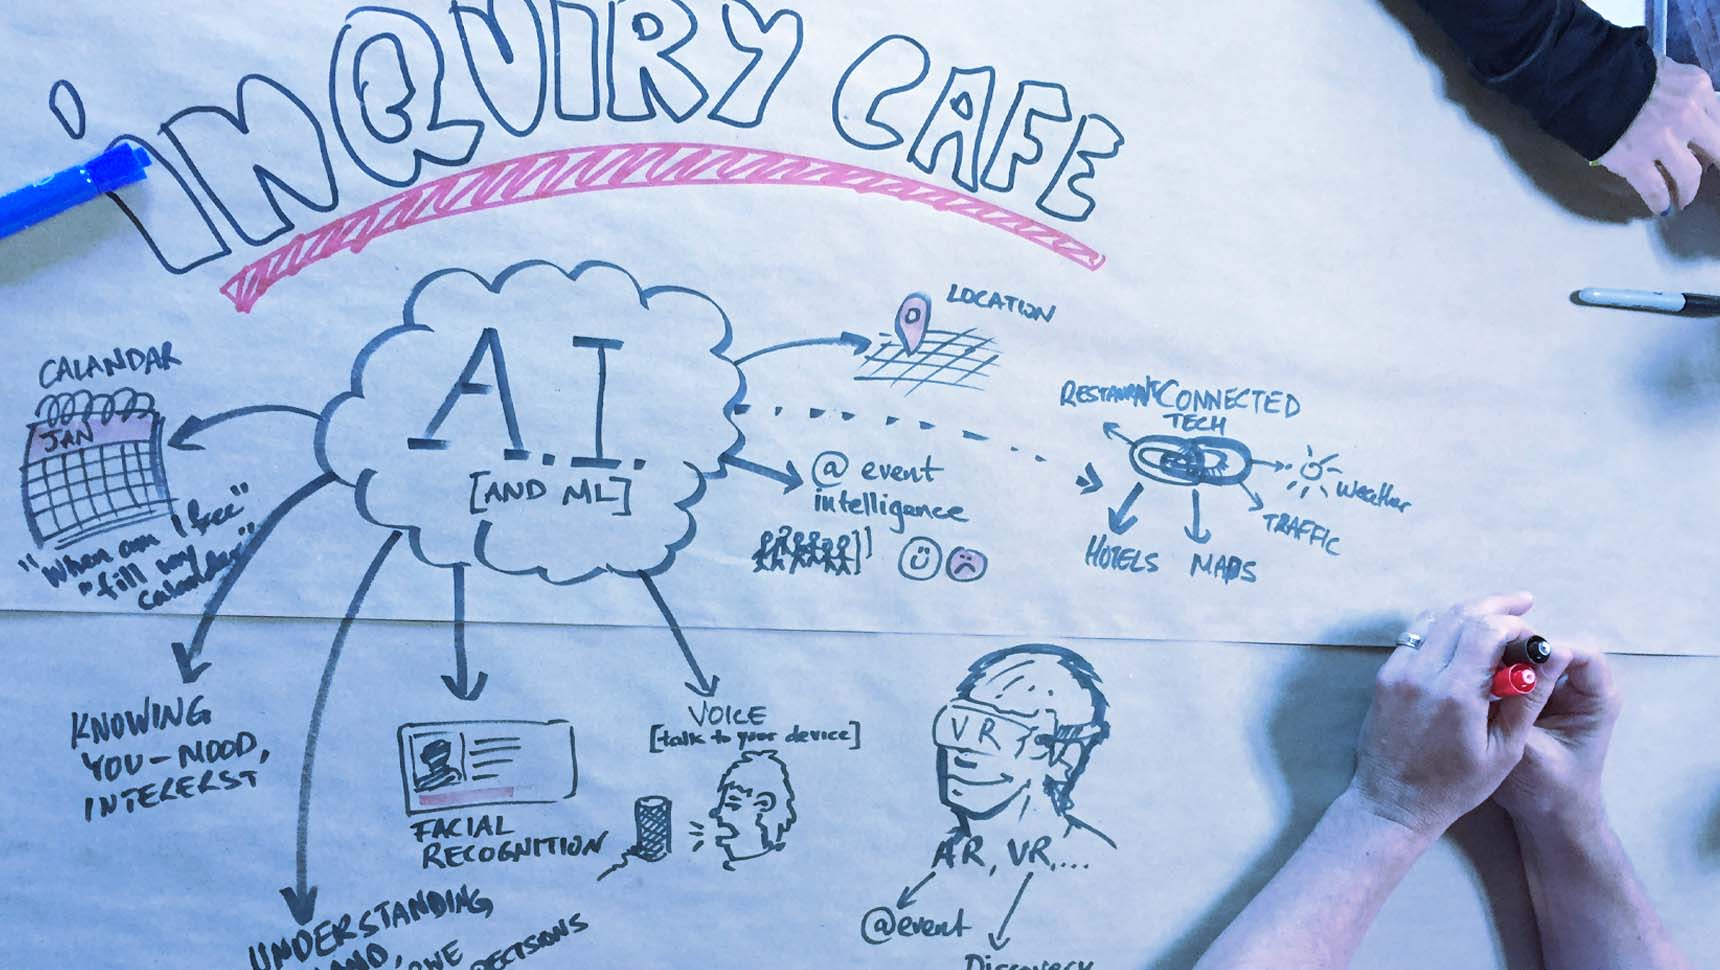 in@UIRY CAFE
A.I.
[AND ML]
CALANDAR
JAN
"When am I free"
"fill my
calendar"
LOCATION
@ event
intelligence
RESTAURANTS
CONNECTED
TECH
weather
TRAFFIC
HOTELS
MAPS
KNOWING
YOU-MOOD,
INTERERST
FACIAL
RECOGNITION
VOICE
[talk to your device]
VR
AR, VR,...
@event
Discovery
UNDERSTANDING
DECISIONS